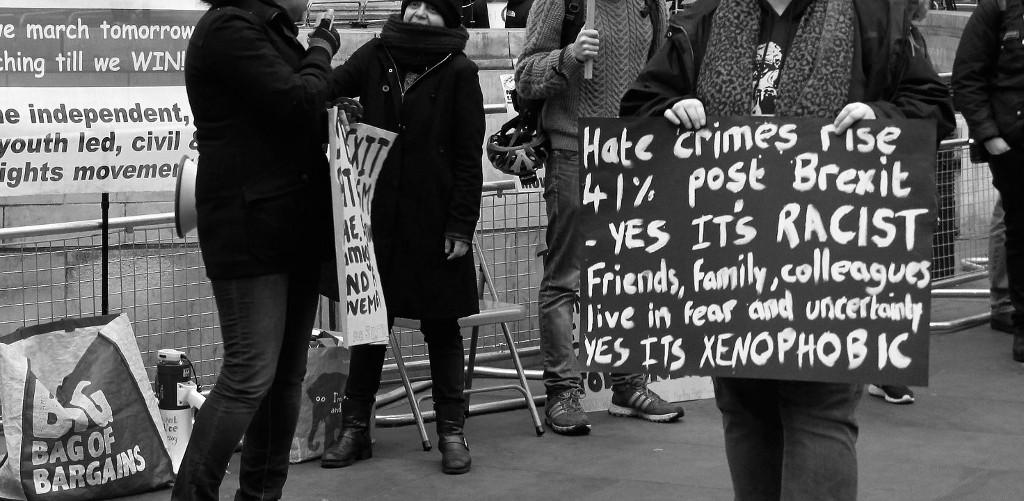 we march tomorrow
ching till we WIN!
e independent,
youth led, civil &
ights movemen
EXIT
Hate crimes rise
41% post Brexit
- YES IT'S RACIST
Friends, family, colleagues
live in fear and uncertainty
YES ITS XENOPHOBIC
BAG
BAG OF
BARGAINS